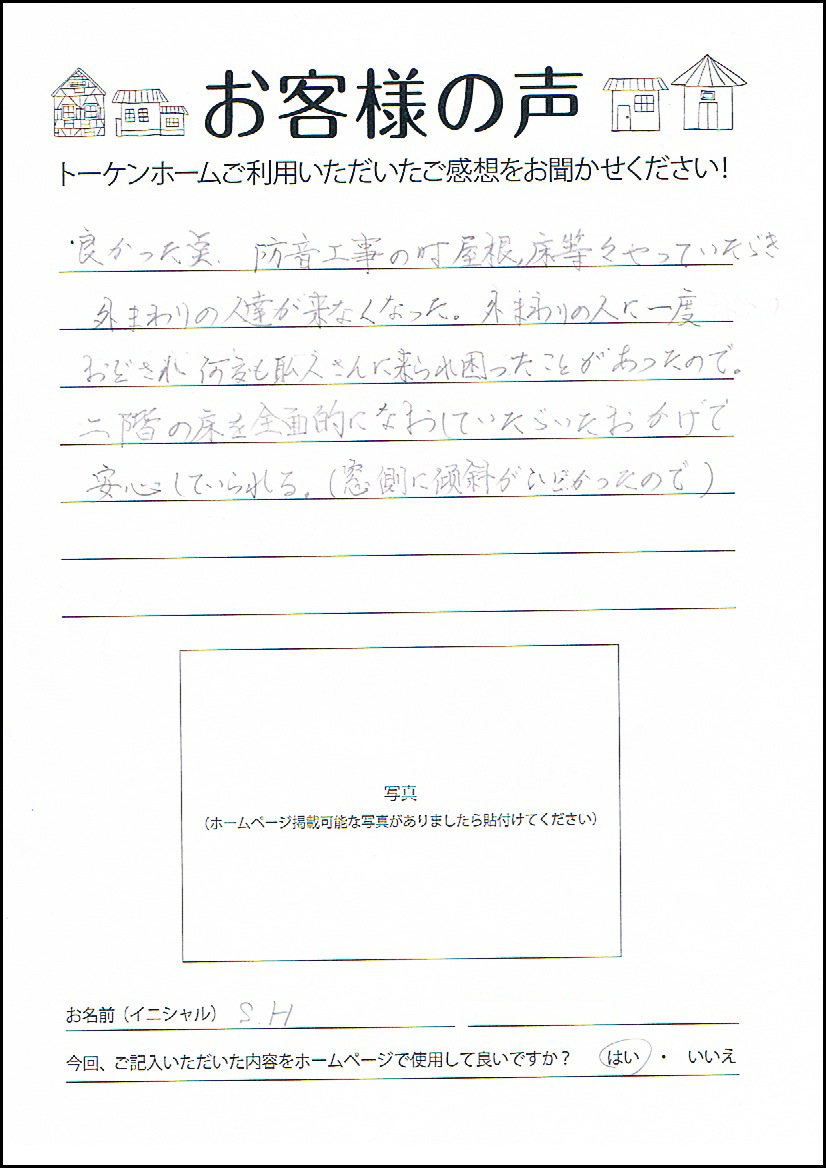 お客様の声
トーケンホームご利用いただいたご感想をお聞かせください!
・良かった点、防音工事の時屋根、床等々やっていただき
外まわりの人達が来なくなった。外まわりの人に一度
おどされ何度も職人さんに来られ困ったことがあったので。
二階の床を全面的になおしていただいたおかげで
安心していられる。(窓側に傾斜がひどかったので)
写真
(ホームページ掲載可能な写真がありましたら貼付けてください)
お名前(イニシャル) S.H
今回、ご記入いただいた内容をホームページで使用して良いですか? はい ・ いいえ